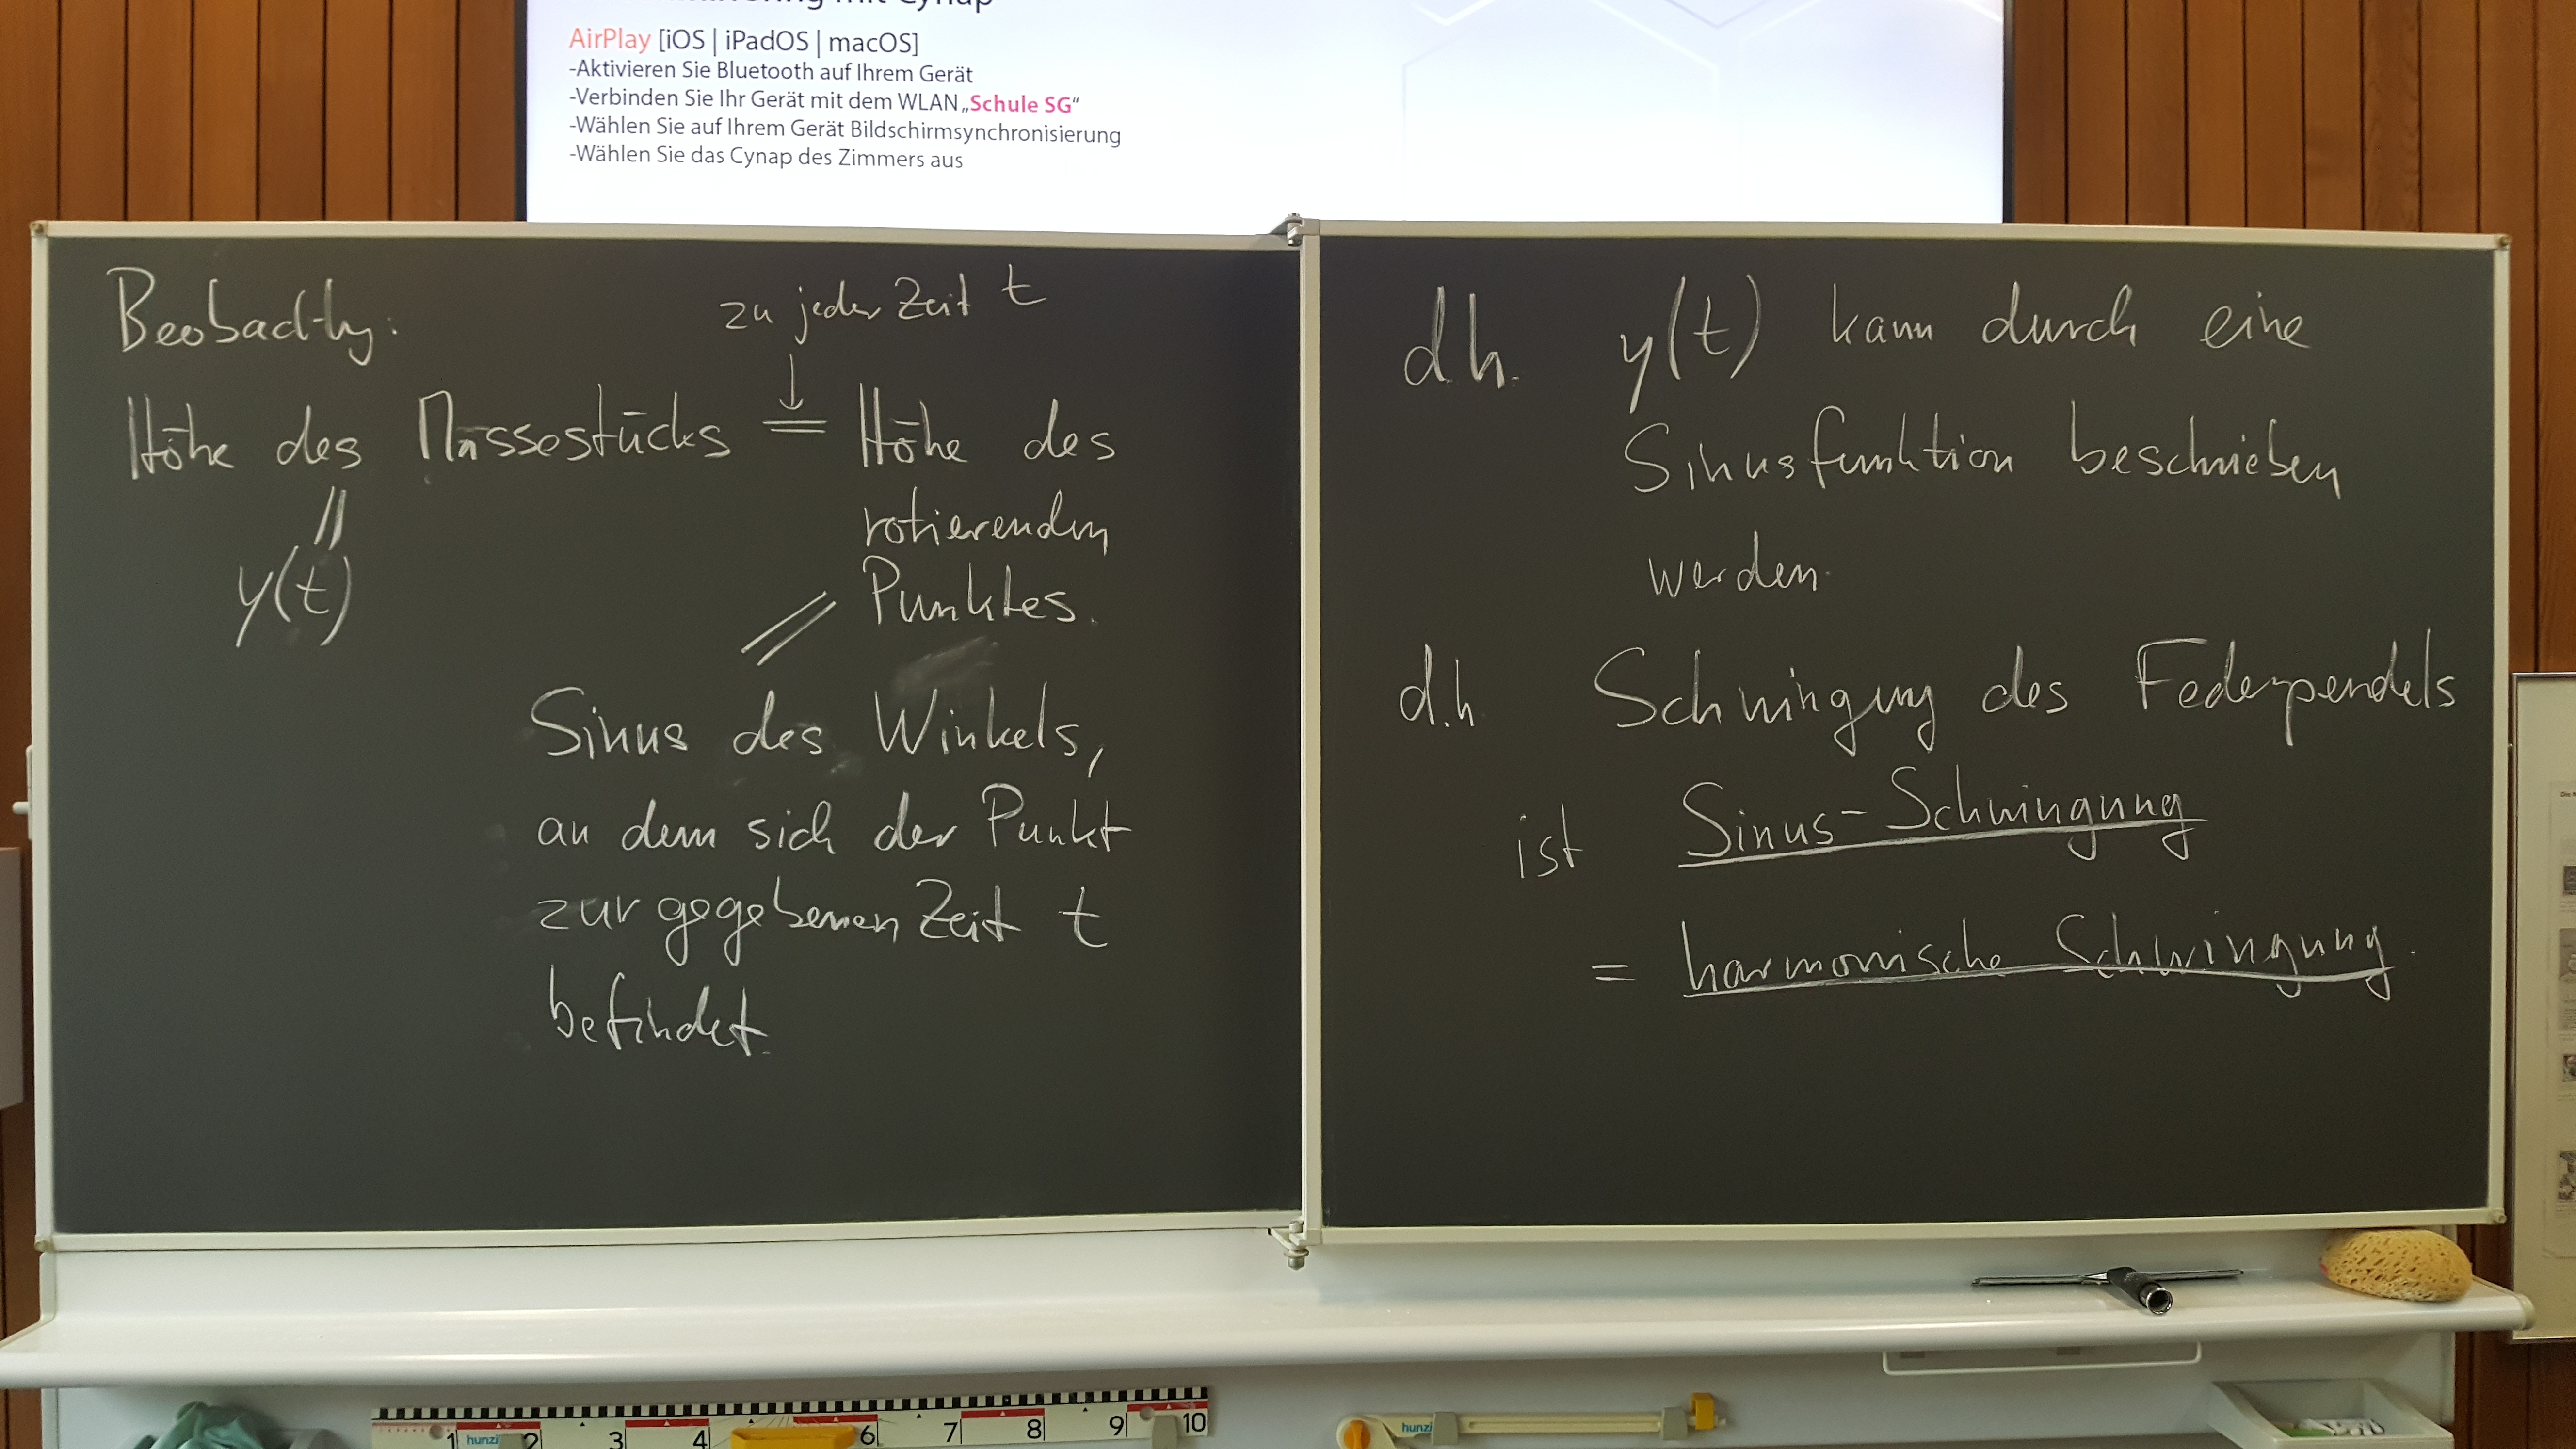 mit Cynap
AirPlay [iOS | iPadOS | macOS]
-Aktivieren Sie Bluetooth auf Ihrem Gerät
-Verbinden Sie Ihr Gerät mit dem WLAN „Schule SG“
-Wählen Sie auf Ihrem Gerät Bildschirmsynchronisierung
-Wählen Sie das Cynap des Zimmers aus
Beobachtg:
zu jeder Zeit t
↓
Höhe des Massestücks = Höhe des
rotierenden
Punktes.
=
y(t)
=
Sinus des Winkels,
an dem sich der Punkt
zur gegebenen Zeit t
befindet.
d.h. y(t) kann durch eine
Sinusfunktion beschrieben
werden.
d.h Schwingung des Federpendels
ist Sinus-Schwingung
= harmonische Schwingung.
1 2 3 4 6 7 8 9 10
hunzi
hunzi